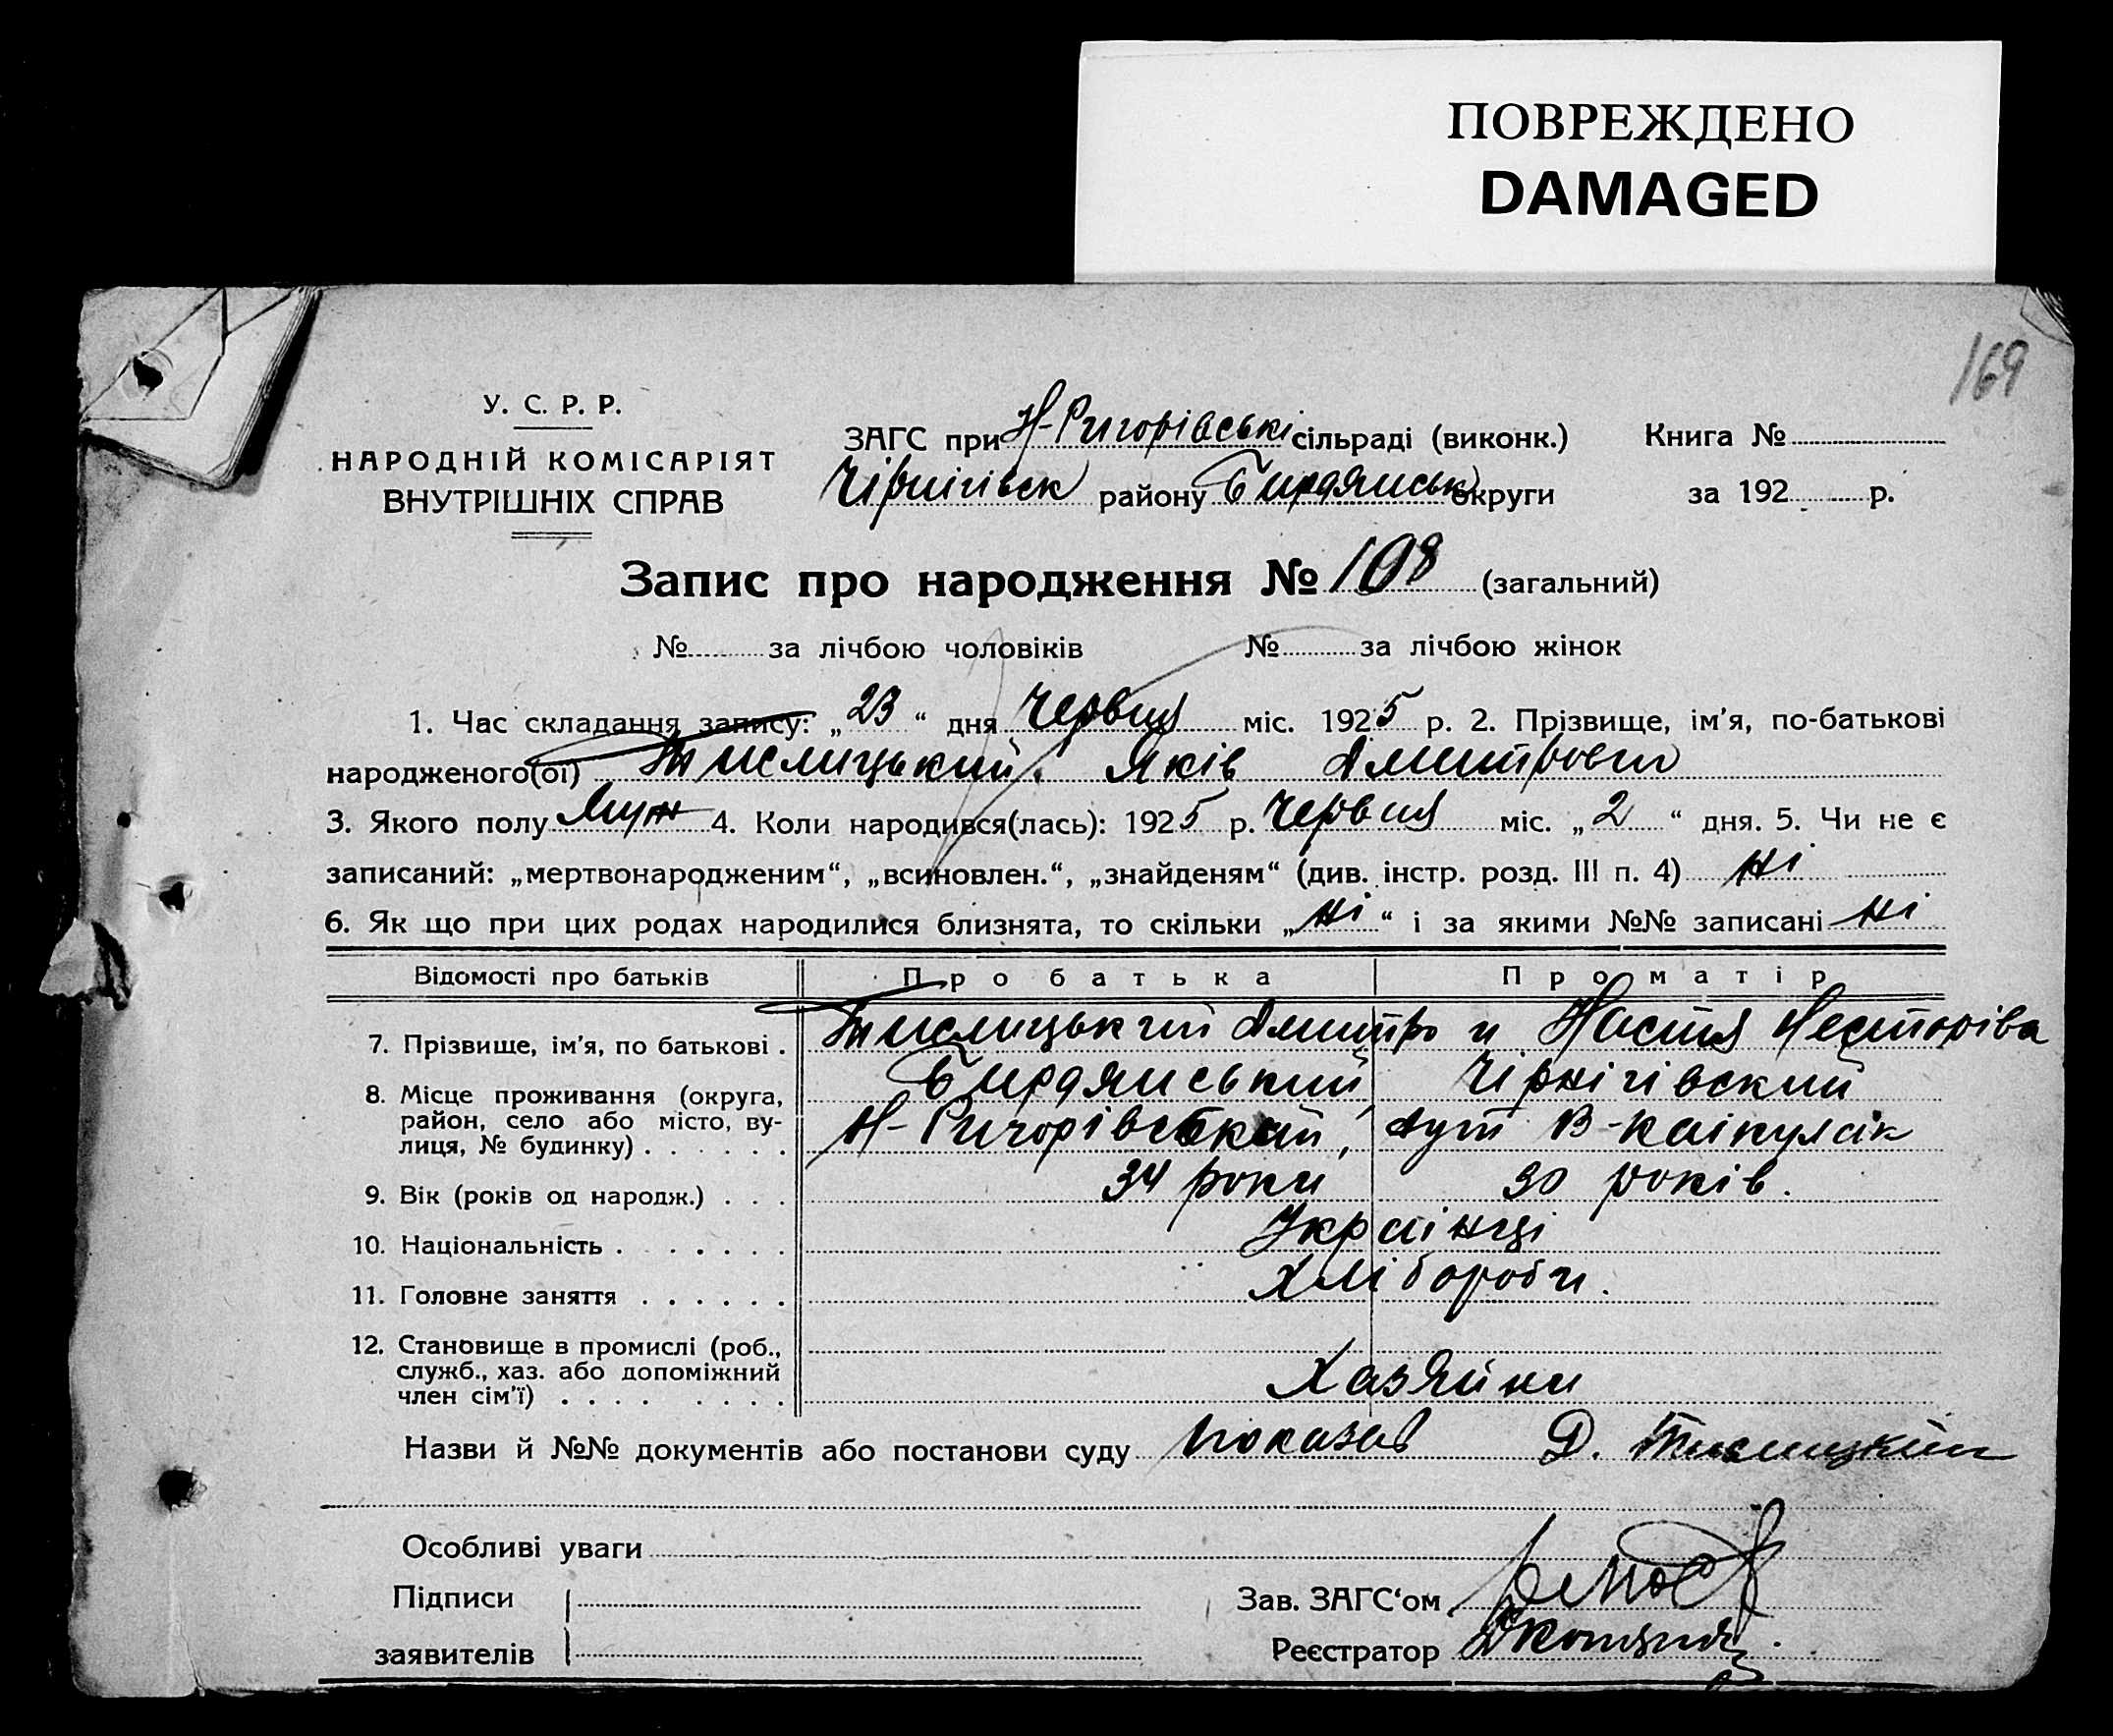 ПОВРЕЖДЕНО
DAMAGED
169
У. С. Р. Р.
НАРОДНІЙ КОМІСАРІЯТ
ВНУТРІШНІХ СПРАВ
ЗАГС при Н-Ригорівські сільраді (виконк.) Книга №
Чірнігівск району Бирдянськ округи за 192 р.
Запис про народження № 108 (загальний)
№ за лічбою чоловіків № за лічбою жінок
1. Час складання запису: „23“ дня Червця міс. 1925 р. 2. Прізвище, ім'я, по-батькові
народженого(ої) Тислицький Яків Дмитрович
3. Якого полу Муж 4. Коли народився(лась): 1925 р. Червця міс. „2“ дня. 5. Чи не є
записаний: „мертвонародженим“, „всиновлен.“, „знайденям“ (див. інстр. розд. III п. 4) Ні
6. Як що при цих родах народилися близнята, то скільки „Ні“ і за якими №№ записані Ні
Відомості про батьків Про батька Про матір
7. Прізвище, ім'я, по батькові . Тислицький Дмитро и Настя Несторіва
8. Місце проживання (округа, Бирдянський Чірнігівский
район, село або місто, ву-
лиця, № будинку) . . . . . . Н-Ригорівский,
9. Вік (років од народж.) . . . 34 роки 30 років.
10. Національність . . . . . . . Українці
11. Головне заняття . . . . . . Хлібороби.
12. Становище в промислі (роб.,
служб., хаз. або допоміжний
член сім'ї) . . . . . . . . Хазяйни
Назви й №№ документів або постанови суду показав Д. Тислицкий
Особливі уваги
Підписи
Зав. ЗАГС‘ом
заявителів
Реєстратор